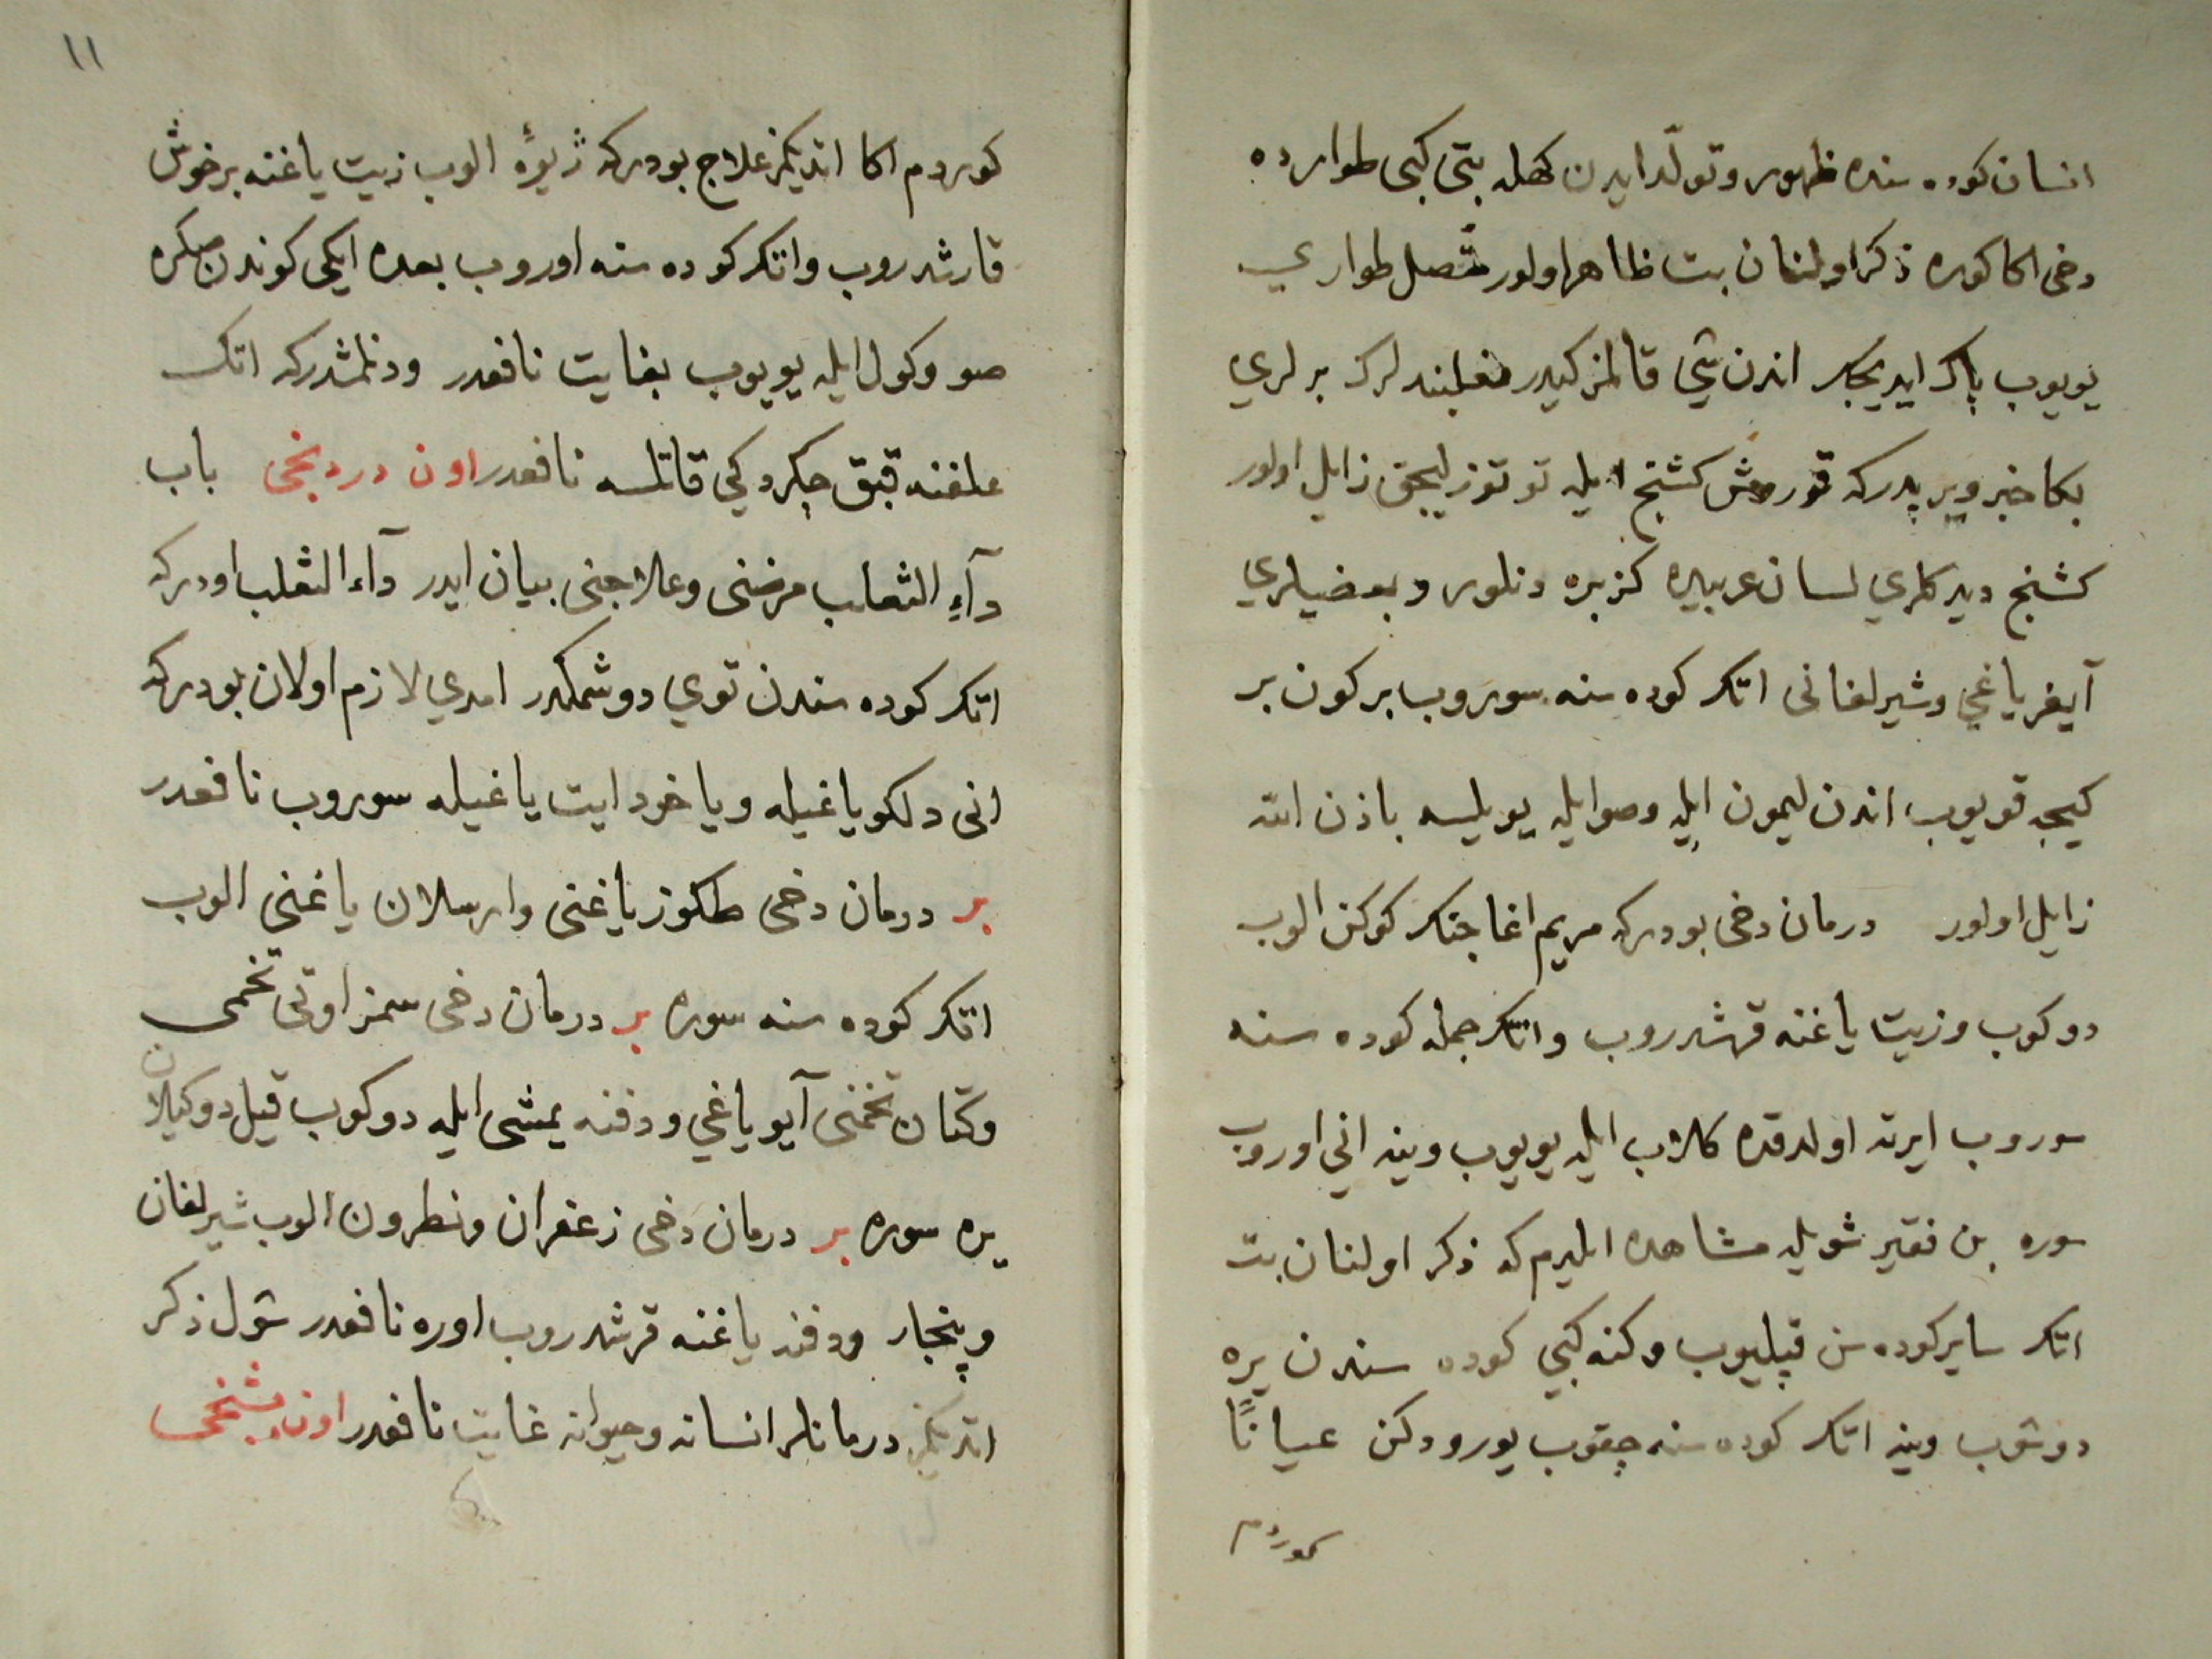 انسان كوده سنده ظهور وتولّد ايدن كهله بتى كبى طوارده
دخى اكا كوره ذكر اولنان بت ظاهر اولور متّصل طوارى
يويوب پاك ايديجك اندن شي قالمز كيدر نعلبندلرك برلري
بكا خبر ويريدركه قورومش كشنج ايله توتوزليجق زايل اولور
كشنج ديدكلري لسان عربيده كزبره دنلور وبعضيلري
آيغر ياغي وشيرلغانى اتك كوده سنه سوروب بر كون بر
كيجه قويوب اندن ليمون ايله وصو ايله يويلسه باذن الله
زايل اولور درمان دخى بودركه مريم اغاجنك كوكن الوب
دوكوب وزيت ياغنه قرشدروب واتك جمله كوده سنه
سوروب ايرته اولدقده كلاب ايله يويوب وينه اني اوروب
سوره بن فقير شويله مشاهده ايلدم كه ذكر اولنان بت
اتك ساير كوده سن قپليوب وكنه كبي كوده سندن يره
دوشوب وينه اتك كوده سنه چقوب يورودكن عيانًا
كوردم
١١
كوردم اكا اتديكمز علاج بودركه ژيوۀ الوب زيت ياغنه برخوش
قارشدروب واتك كوده سنه اوروب بعده ايكى كوندن صكره
صو وكول ايله يويوب بغايت نافعدر ودنلمشدركه اتك
علفنه قبق چكردكي قاتلسه نافعدر اون دردنجى باب
دآءِ الثعلب مرضنى وعلاجنى بيان ايدر دآء الثعلب اودركه
اتك كوده سندن توي دوشمكدر امدي لازم اولان بودركه
انى دلكو ياغيله وياخود ايت ياغيله سوروب نافعدر
بر درمان دخى طكوز ياغنى وارسلان ياغنى الوب
اتك كوده سنه سوره بر درمان دخى سمز اوتى تخمى
وكتان تخمنى آيو ياغي ودفنه يمشى ايله دوكوب قيل دوكيلان
يره سوره بر درمان دخى زعفران ونطرون الوب شيرلغان
وپنجار ودفنه ياغنه قرشدروب اوره نافعدر شول ذكر
اتديكمز درمانلر انسانه وحيوانه غايت نافعدر اون بشنجى